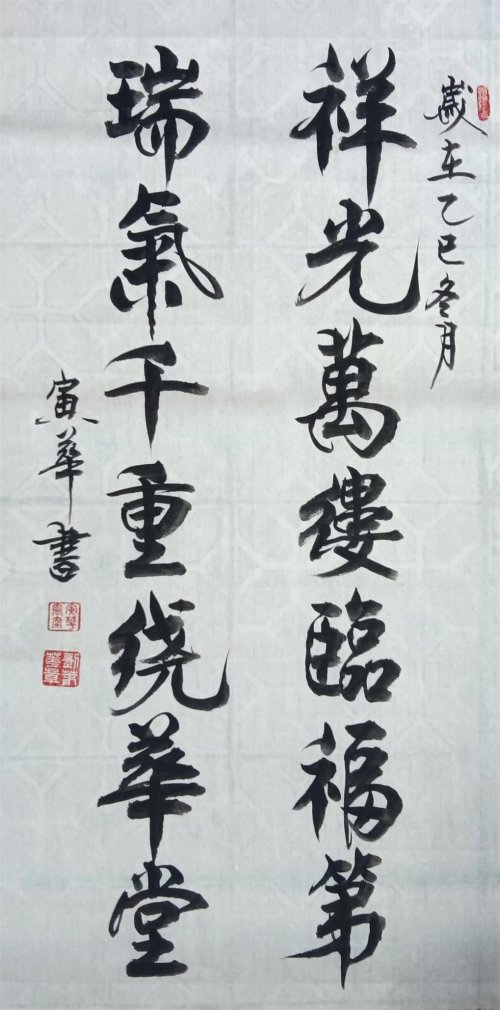 歲在乙巳冬月
祥光萬縷臨福第
瑞氣千重绕華堂
寅華書